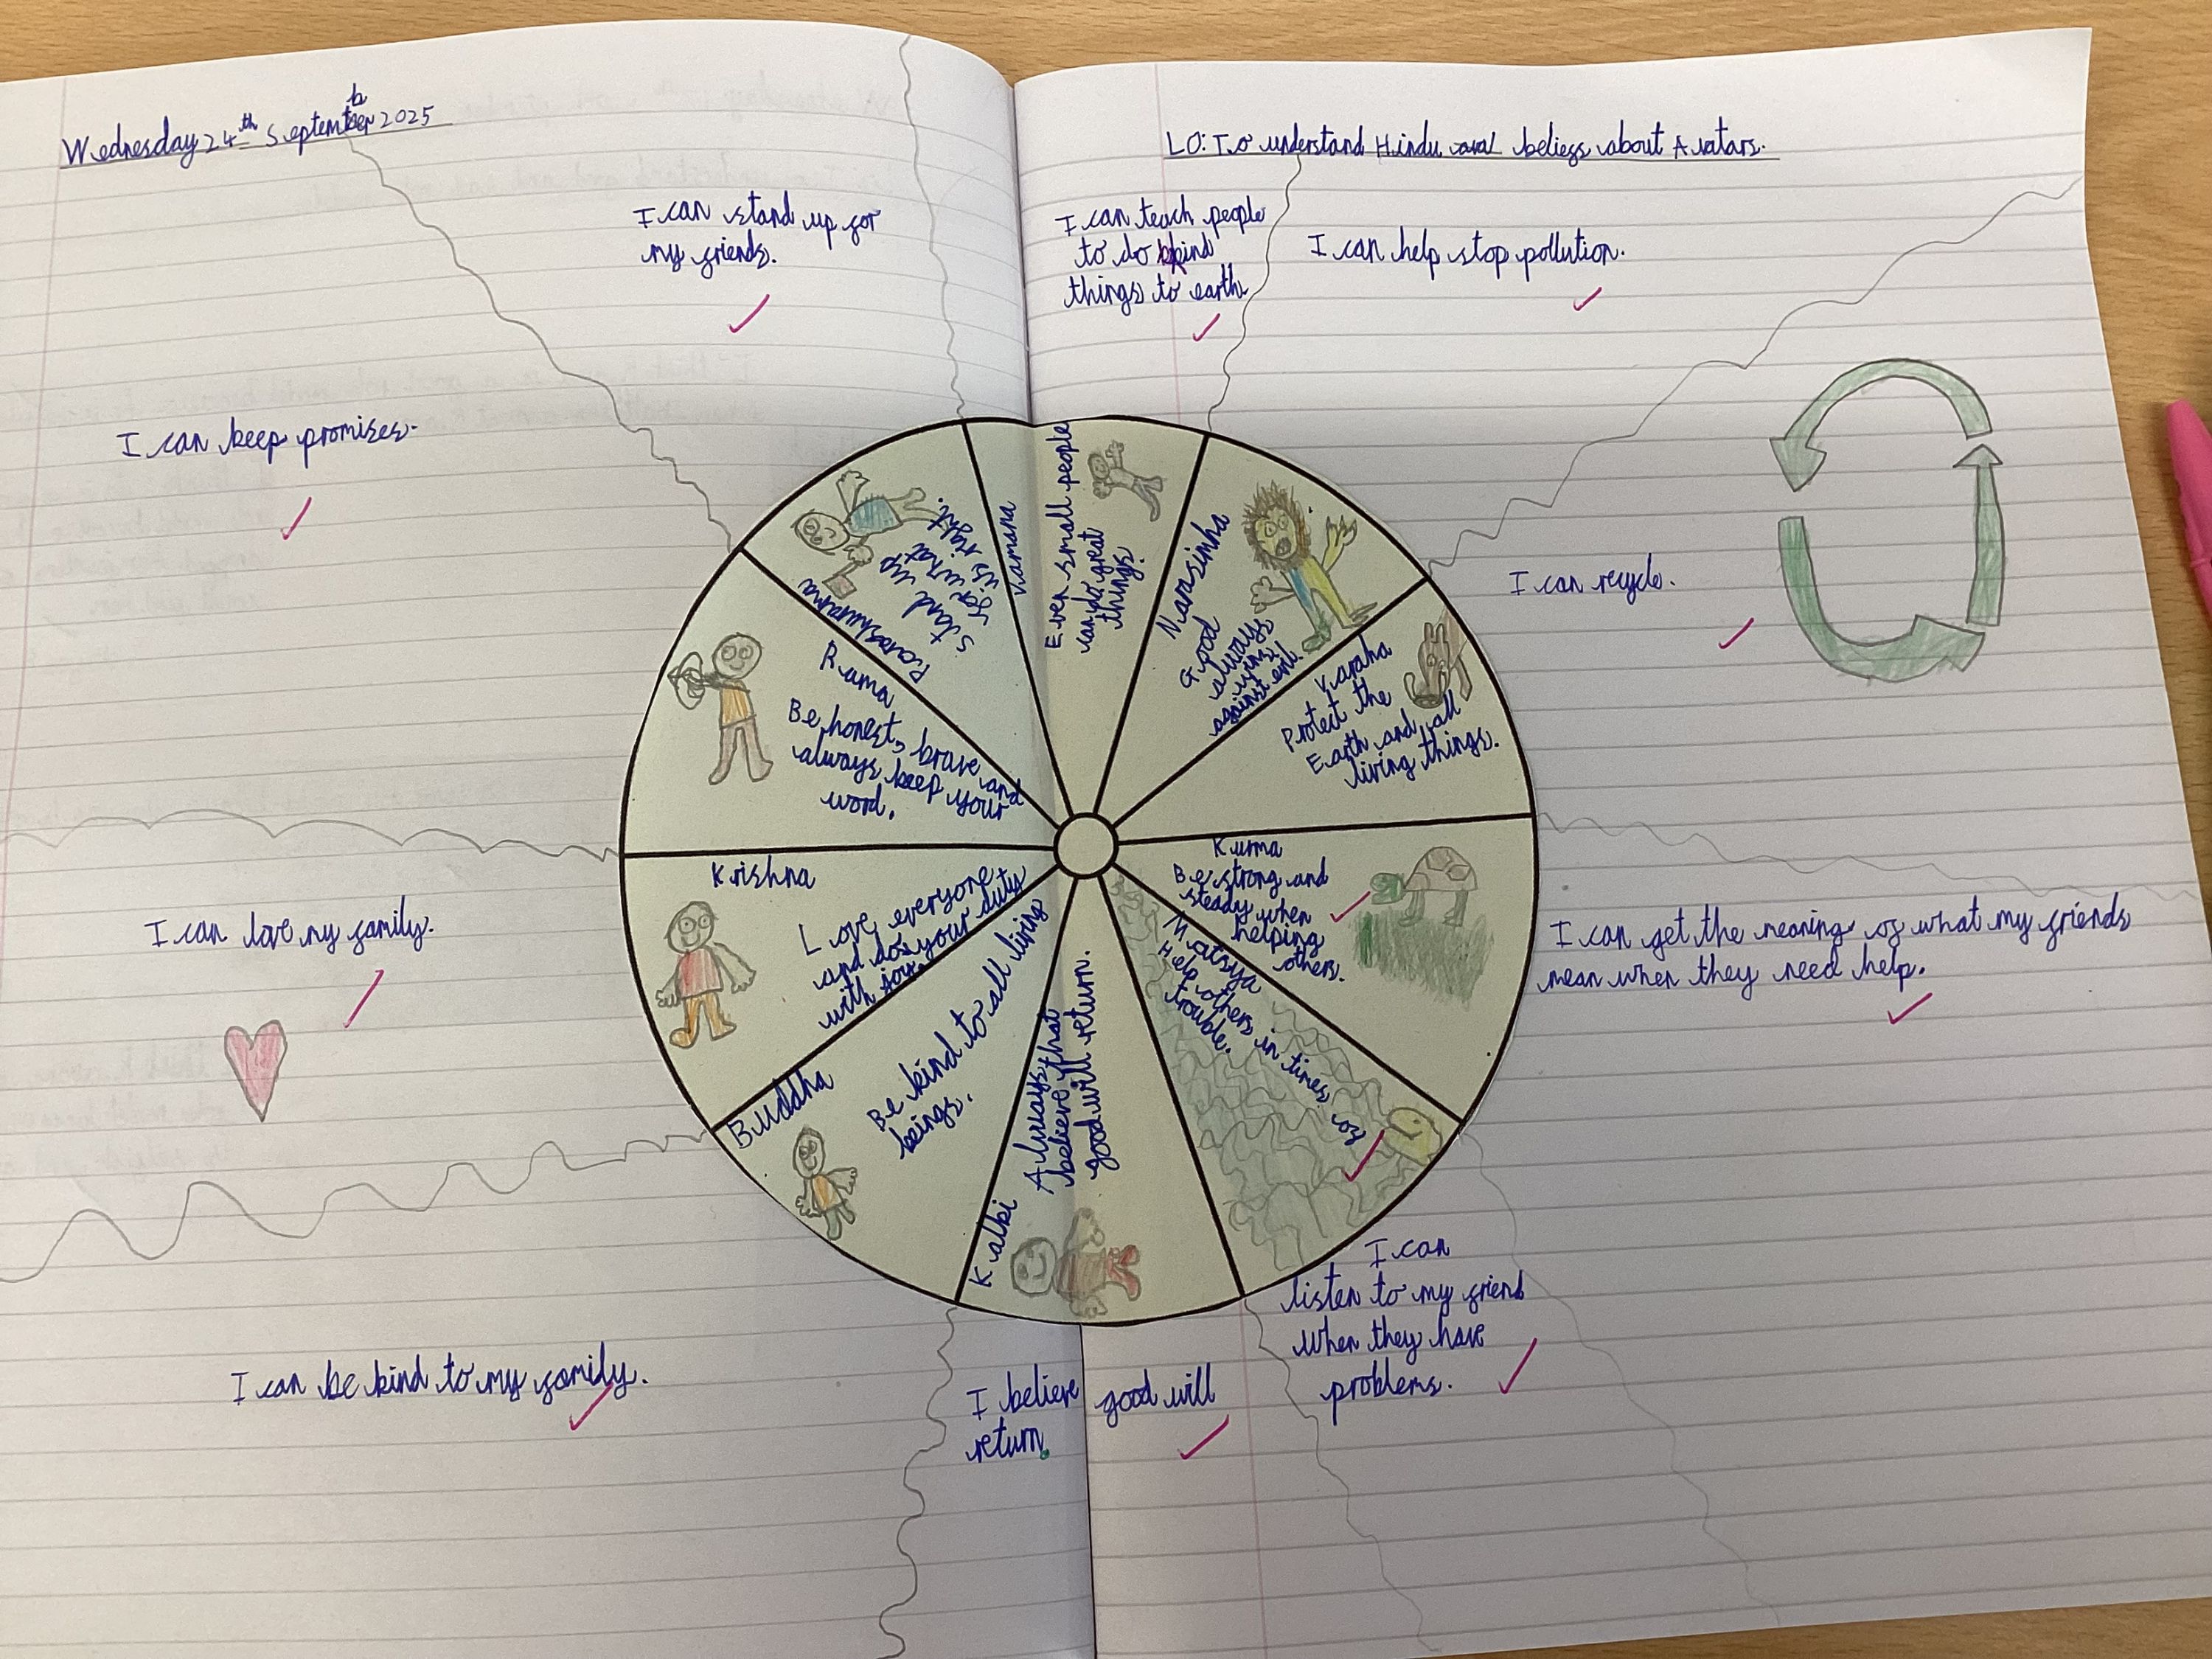 Wednesday 24th September 2025
LO: To understand Hindu beliefs about Avatars.
I can stand up for
my friends.
I can teach people
to do kind
things to earth
I can help stop pollution.
I can keep promises.
I can recycle.
I can love my family.
I can get the meaning of what my friends
mean when they need help.
I can be kind to my family.
I believe good will
return.
I can
listen to my friend
when they have
problems.
Vamana
Even small people
can do great
things.
Narasinha
Good
always
wins
against evil.
Varaha
Protect the
Earth and all
living things.
Kurma
Be strong and
steady when
helping
others.
Matsya
Help others in times of
trouble.
Kalki
Always that
believe
good will return.
Buddha
Be kind to all living
beings.
Krishna
Love everyone
and do your duty
with joy.
Rama
Be honest, brave and
always keep your
word.
Parashurama
stand up
for what
is right.